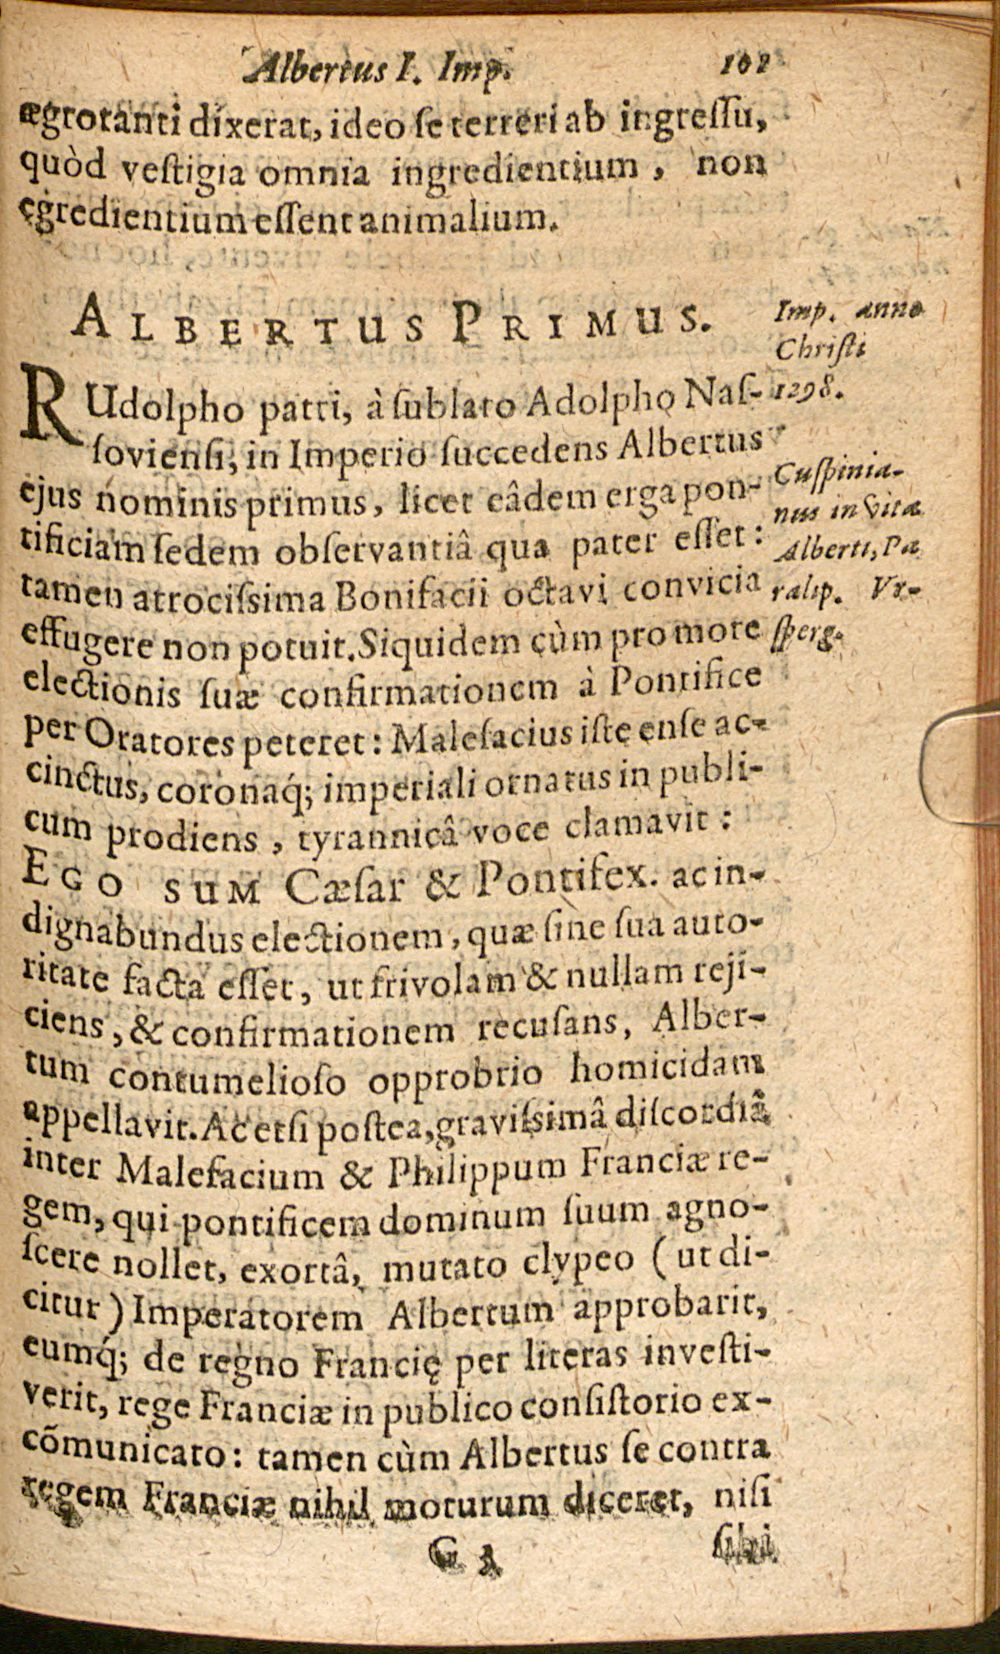 Albertus I. Imp. 101
ægrotanti dixerat, ideo se terreri ab ingressu,
quòd vestigia omnia ingredientium, non
egredientium essent animalium.
ALBERTUS PRIMUS.
RUdolpho patri, à sublato Adolpho Nas-
soviensi, in Imperio succedens Albertus
ejus nominis primus, licet eâdem erga pon-
tificiam sedem observantiâ qua pater esset:
tamen atrocissima Bonifacii octavi convicia
effugere non potuit. Siquidem cùm pro more
electionis suæ confirmationem à Pontifice
per Oratores peteret: Malefacius iste ense ac-
cinctus, coronaq́; imperiali ornatus in publi-
cum prodiens, tyrannicâ voce clamavit:
EGO SUM Cæsar & Pontifex. ac in-
dignabundus electionem, quæ sine sua auto-
ritate facta esset, ut frivolam & nullam reji-
ciens, & confirmationem recusans, Alber-
tum contumelioso opprobrio homicidam
appellavit. Ac etsi postea, gravissimâ discordiâ
inter Malefacium & Philippum Franciæ re-
gem, qui pontificem dominum suum agno-
scere nollet, exortâ, mutato clypeo (ut di-
citur) Imperatorem Albertum approbarit,
eumq́; de regno Francię per literas investi-
verit, rege Franciæ in publico consistorio ex-
cõmunicato: tamen cùm Albertus se contra
regem Franciæ nihil moturum diceret, nisi
G 3 sibi
Imp. anno
Christi
1298.
Cuspinia-
nus in vita
Alberti, Pa
ralip. Vr-
sperg.